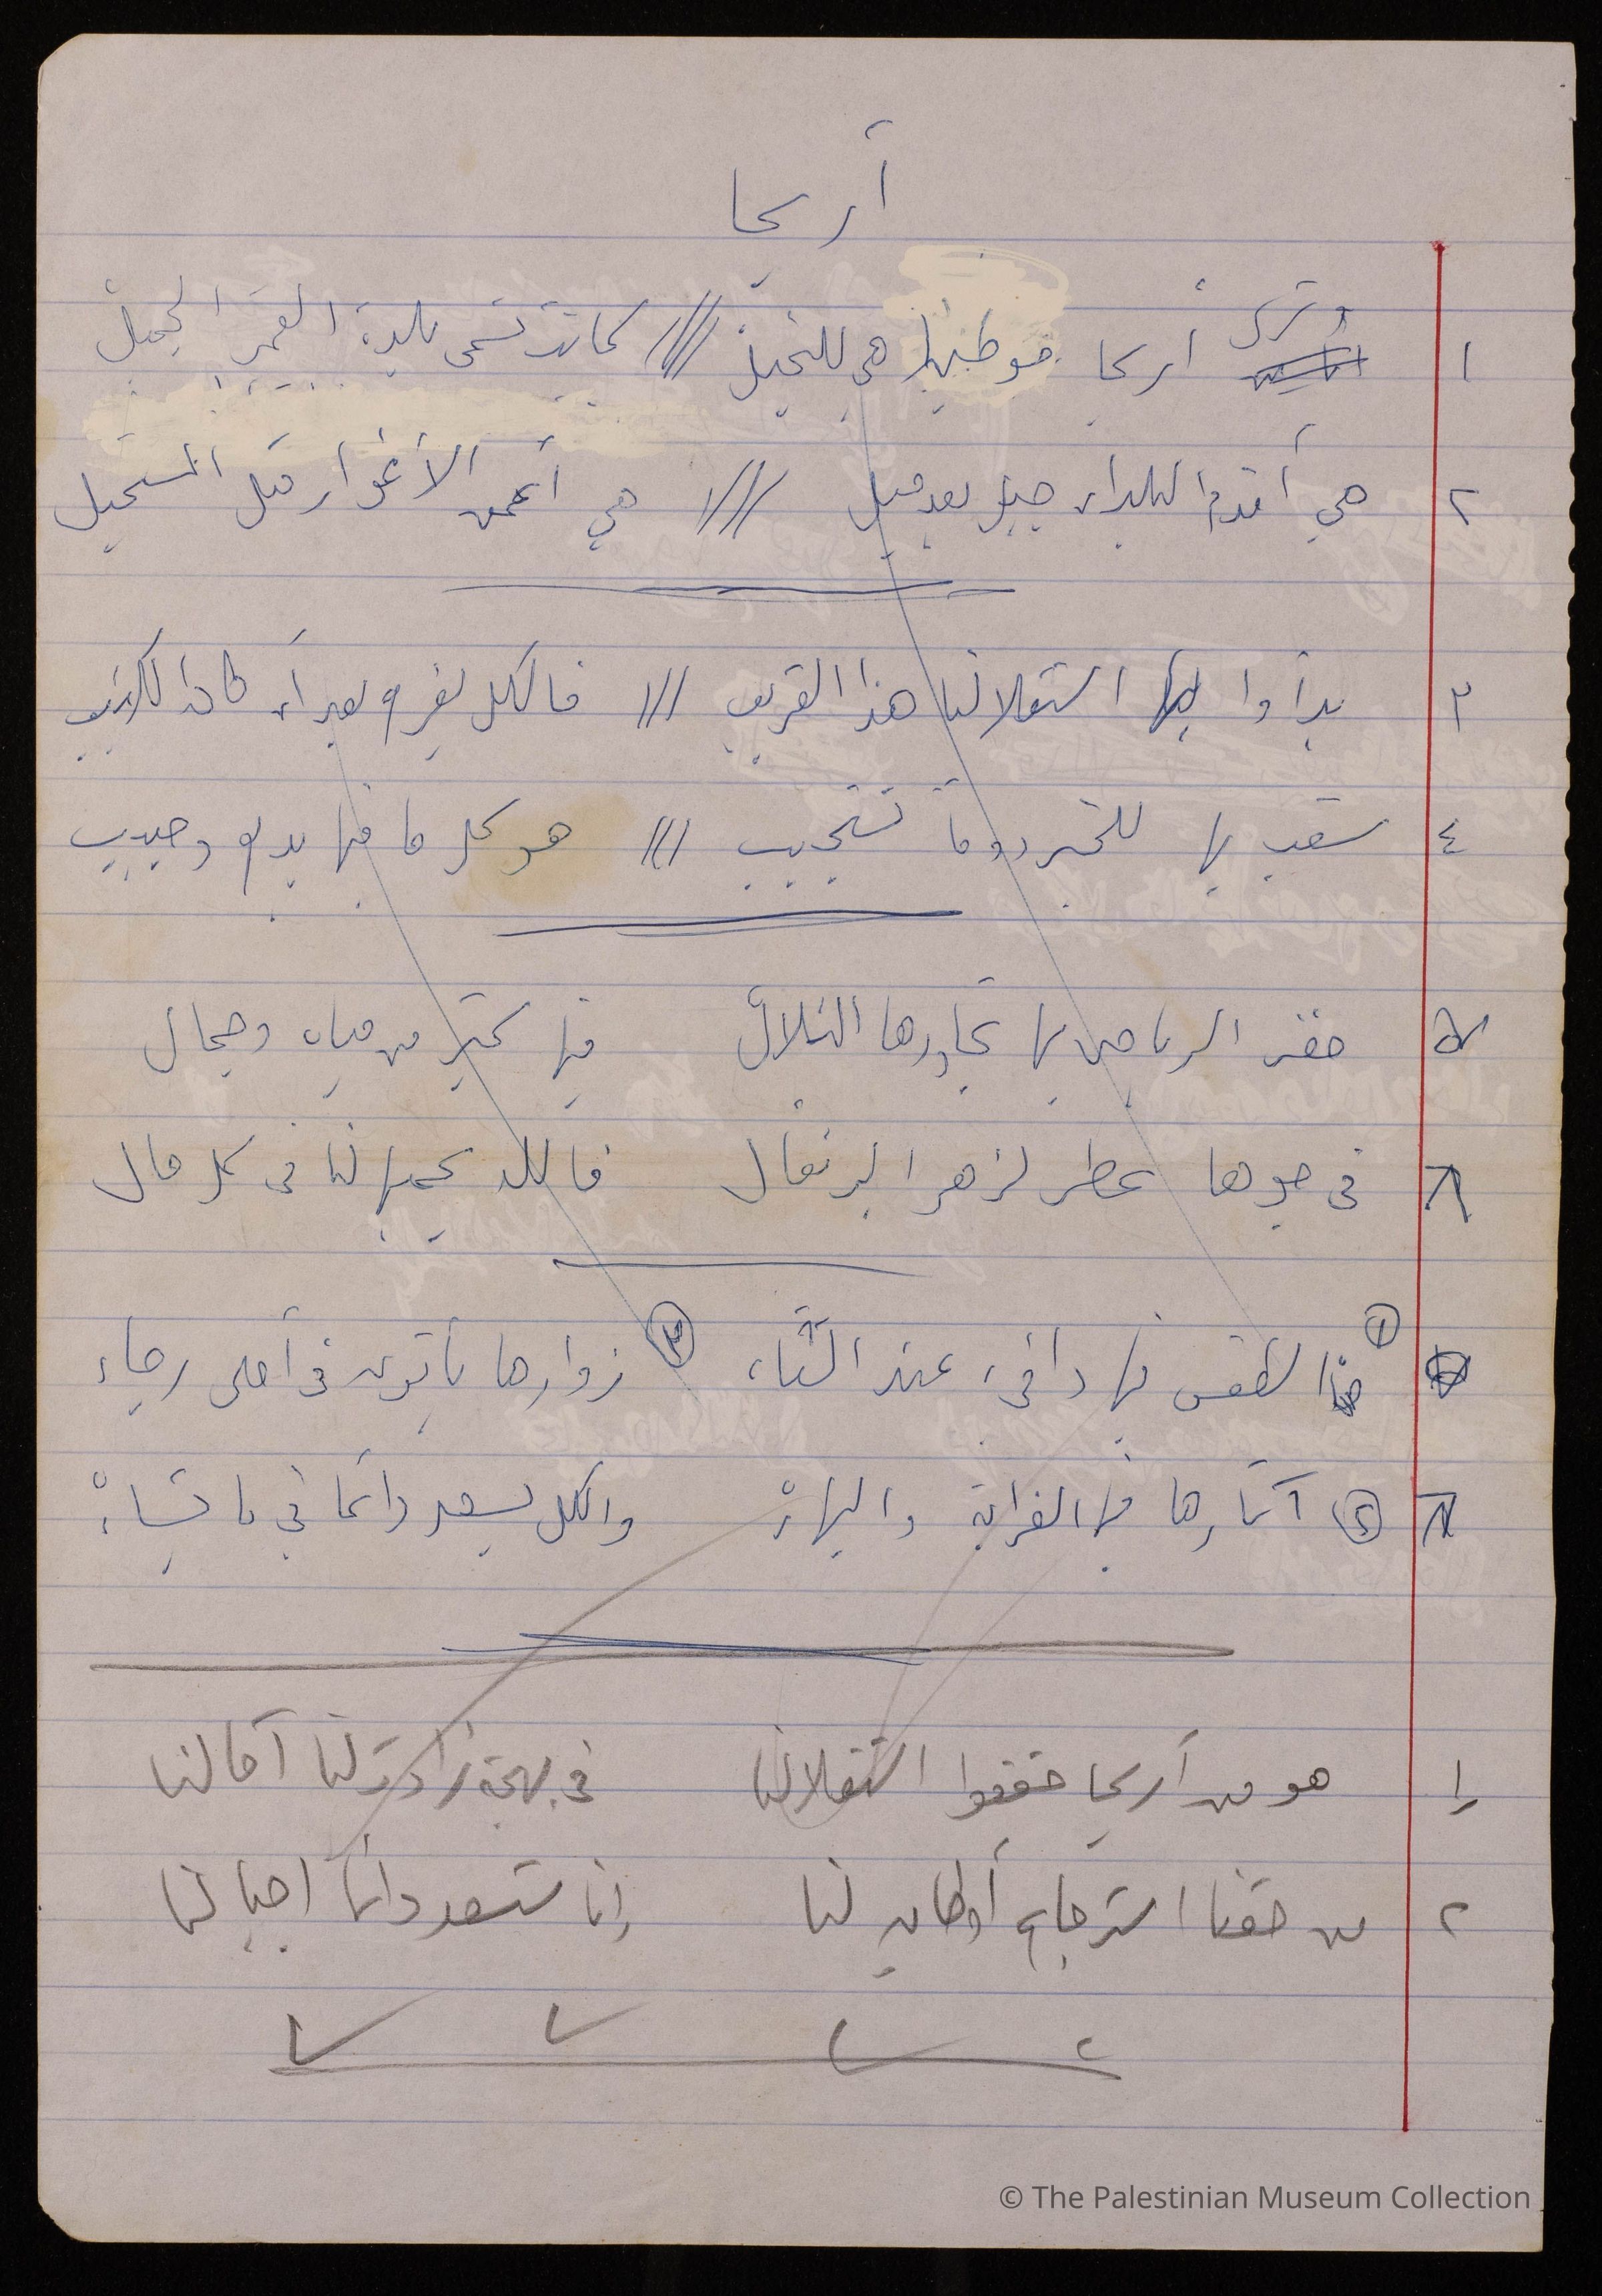 أريحا
١ وترى أريحا موطنا هي للنخيل /// كانت تسمى بلدة القمر الجميل
٢ هي أقدم البلدان جيل بعد جيل /// هي أعمق الأغوار مثل المستحيل
٣ بدأوا بها استقلالنا هذا القريب /// فالكل يفرح بعد أن كان الكئيب
٤ شعب بها للخير دوما تستجيب /// هو كل ما فيها بديع وحبيب
٥ خضر الرياض بها تجاورها التلال فيها كثير من مياه وجمال
٦ في جوها عطر لزهر البرتقال فالله يحميها لنا في كل حال
① الطقس فيها دافئ عند الشتاء ③ زوارها يأتون في أحلى رجاء
② آثارها فيها الغرابة والبهاء والكل يسعد دائما في ما تشاء
١ هو من أريحا حققوا استقلالنا في بهجة زادت لنا آمالنا
٢ من حقنا استرجاع أوطان لنا إنا سنسعد دائما أجيالنا
© The Palestinian Museum Collection